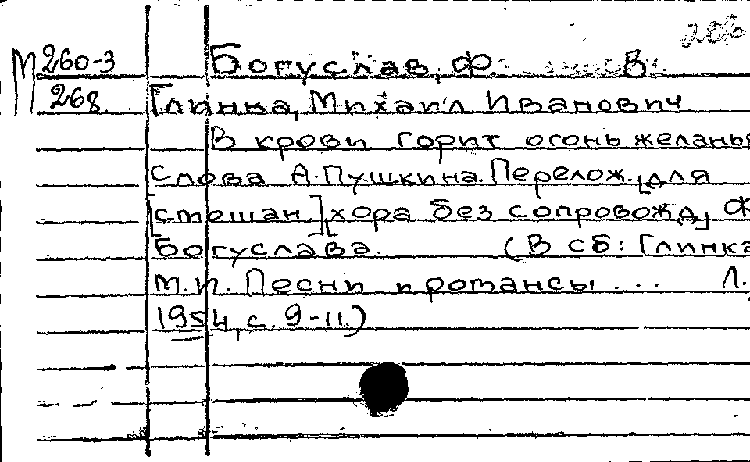 206
М 260-3 Богуслав, Ф. В.
268. Глинка, Михаил Иванович
В крови горит огонь желанья
Слова А. Пушкина. Перелож. для
[смешан.] хора без сопровожд. Ф
Богуслава. (В сб: Глинка
М.И. Песни и романсы... Л.,
1954, с. 9-11.)